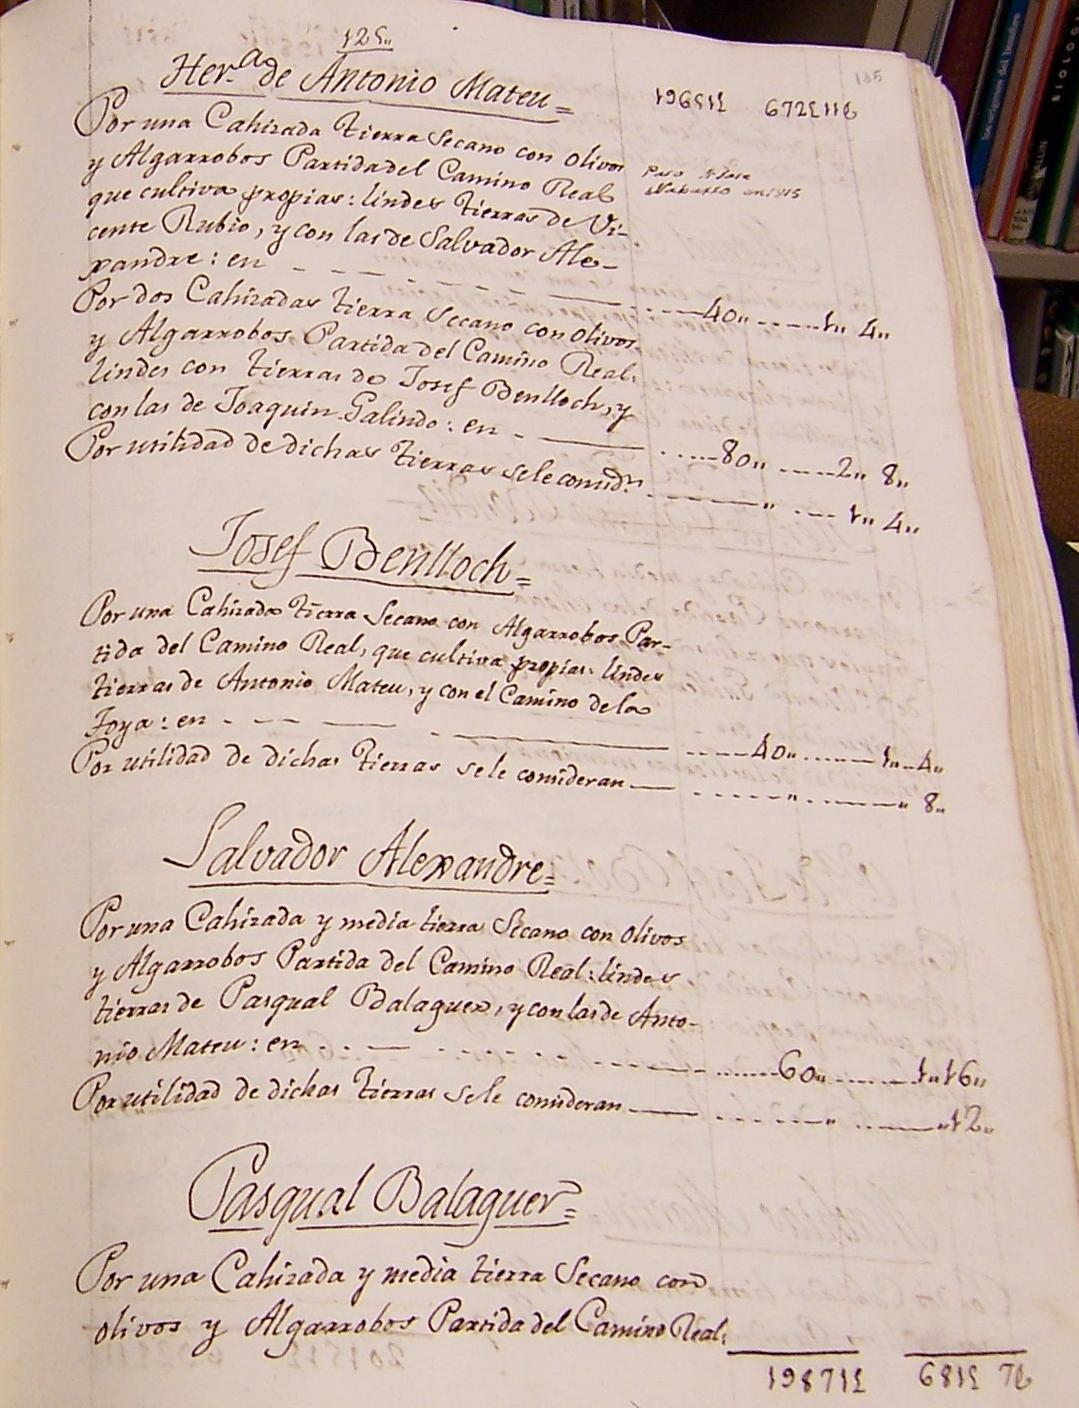 125.,
135
Her.ª de Antonio Mateu=
Por una Cahizada tierra Secano con olivos
y Algarrobos Partida del Camino Real
que cultiva propias: lindes tierras de Vi-
cente Rubio, y con las de Salvador Ale-
xandre: en 40,, 1,, 4,,
Paso A Jose
Navarro en 1815
Por dos Cahizadas tierra Secano con olivos
y Algarrobos Partida del Camino Real:
lindes con tierras de Josef Benlloch, y
con las de Joaquin Galindo: en 80,, 2,, 8,,
Por utilidad de dichas tierras sele consid.n ,, 1,, 4,,
Josef Benlloch=
Por una Cahizada tierra Secano con Algarrobos Par-
tida del Camino Real, que cultiva propias: lindes
tierras de Antonio Mateu, y con el Camino de la
Foya: en 40,, 1,, 4,,
Por utilidad de dichas tierras sele consideran ,, ,, 8,,
Salvador Alexandre=
Por una Cahizada y media tierra Secano con olivos
y Algarrobos Partida del Camino Real: lindes
tierras de Pasqual Balaguer, y con las de Anto-
nio Mateu: en 60,, 1,, 16,,
Por utilidad de dichas tierras sele consideran ,, ,, 12,,
Pasqual Balaguer=
Por una Cahizada y media tierra Secano con
olivos y Algarrobos Partida del Camino Real: